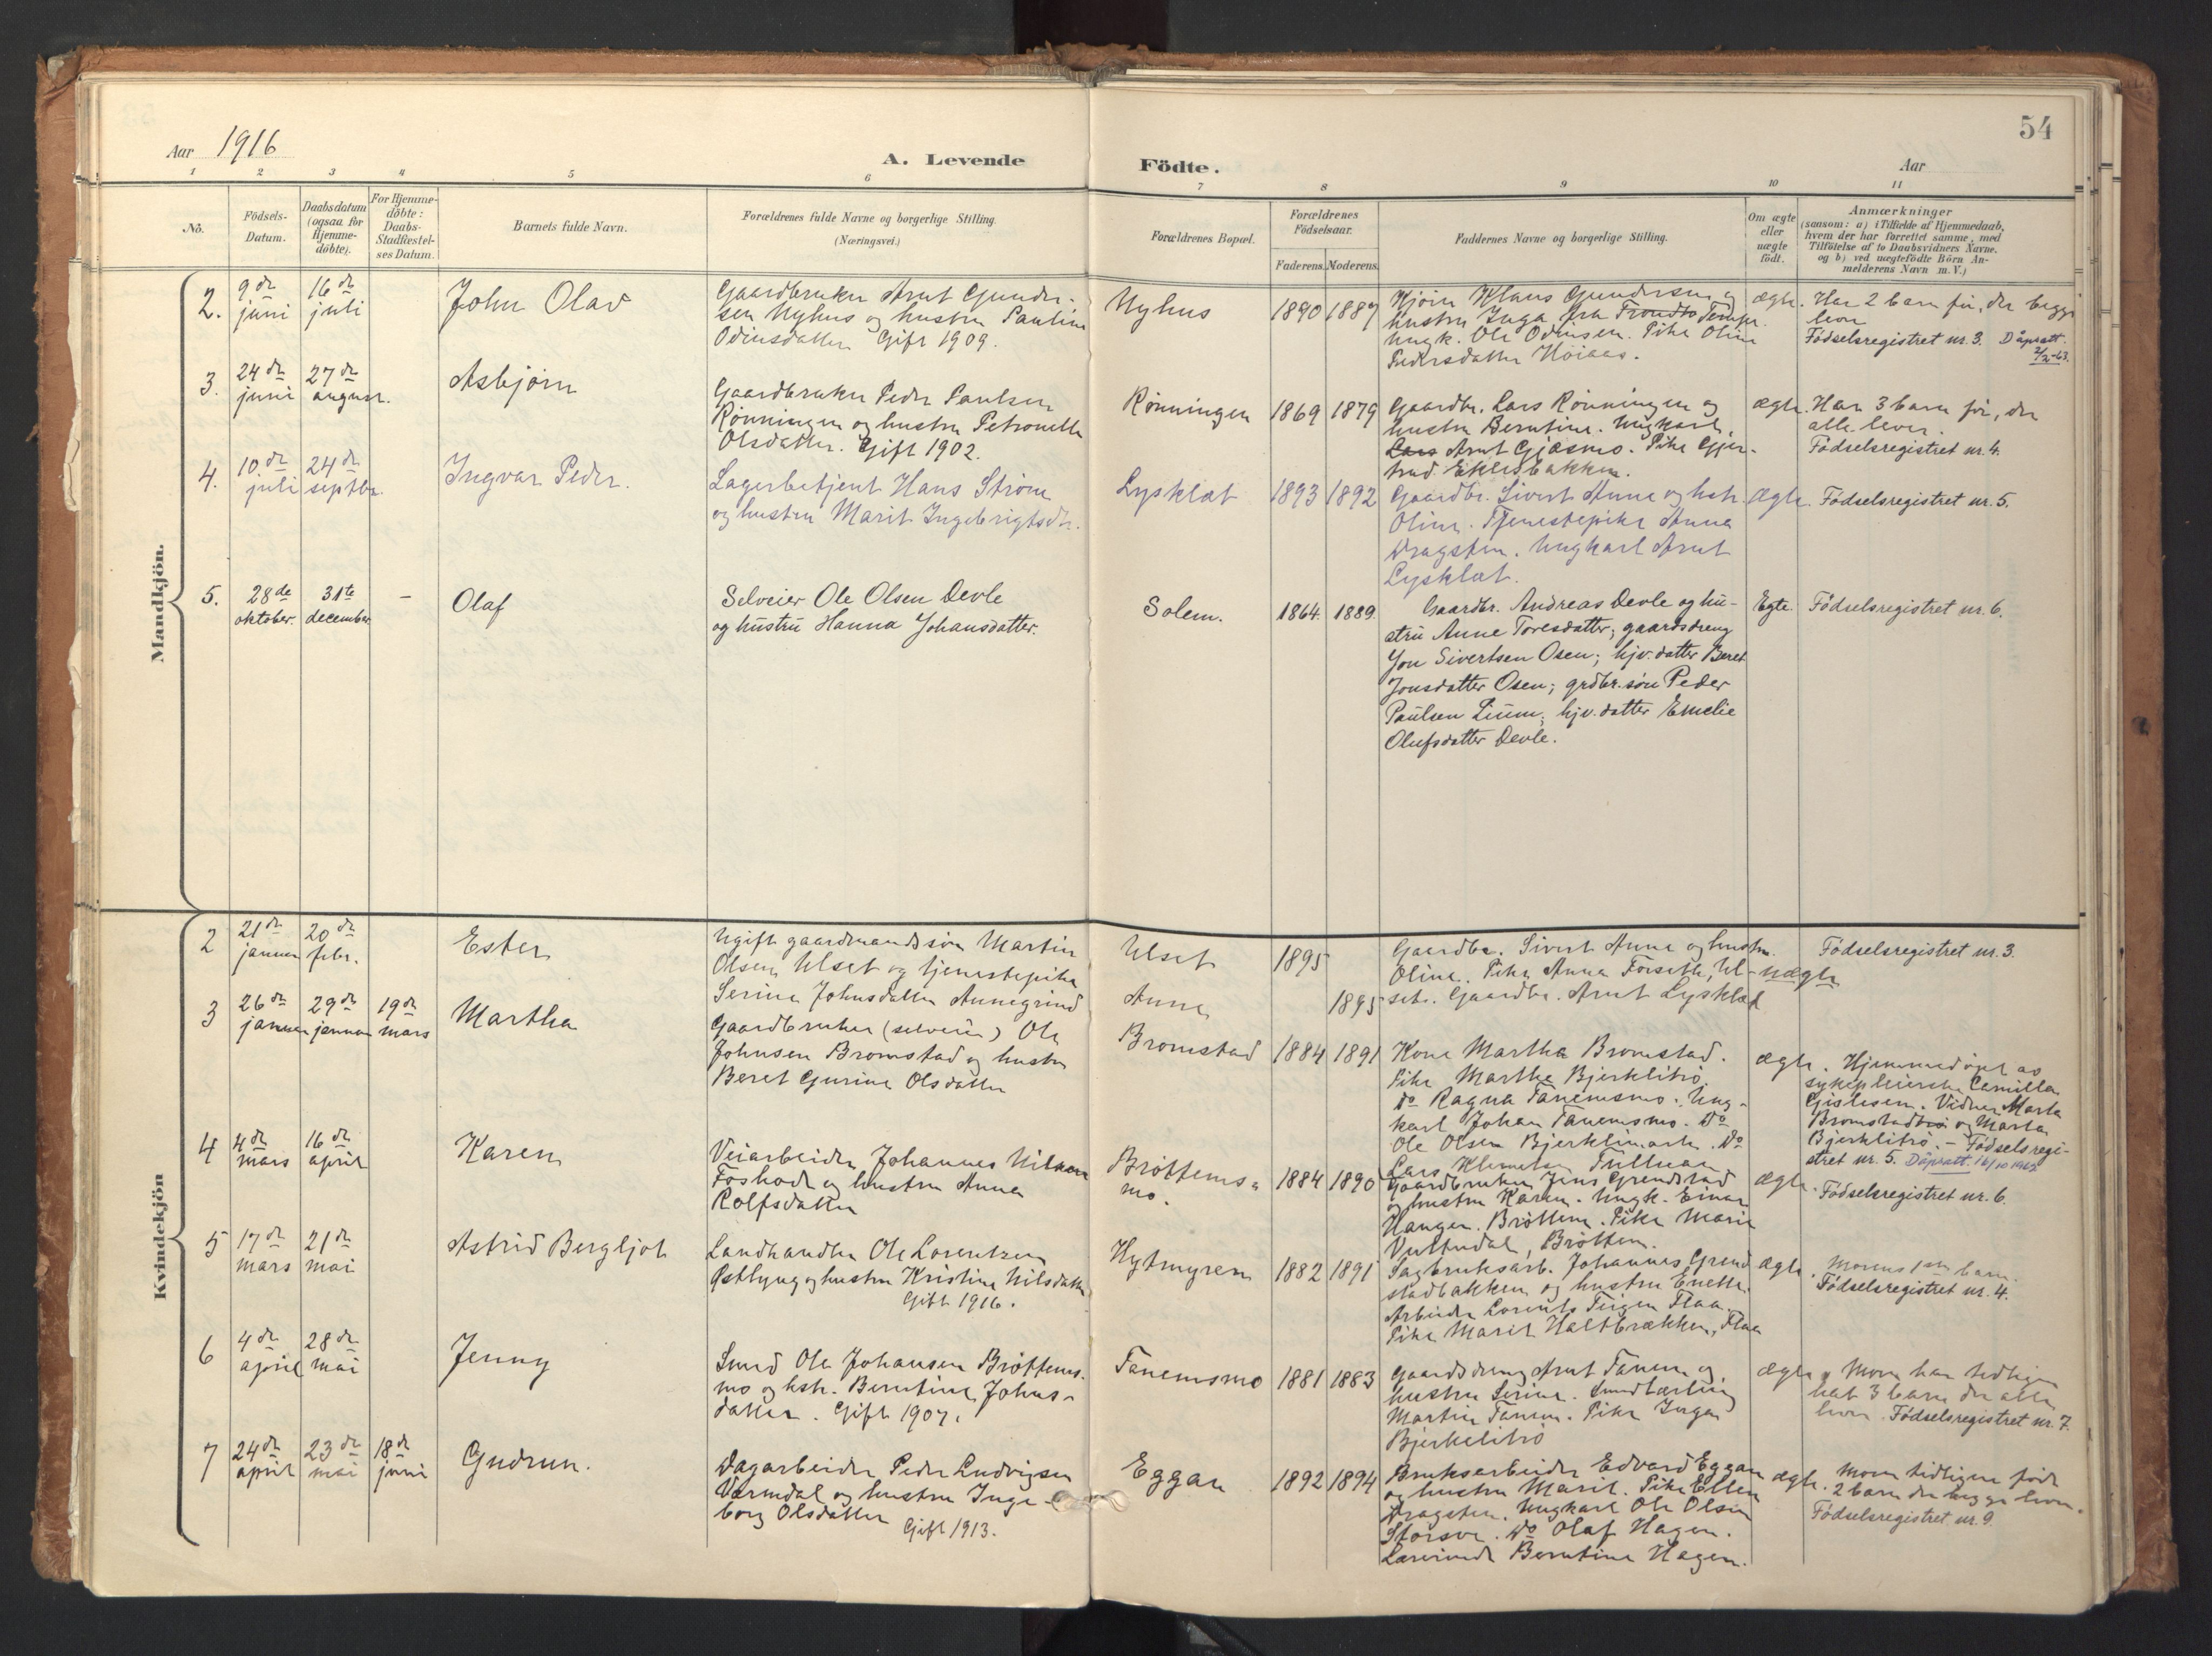 54
Aar 1916
A. Levende
Födte.
Aar
1 2 3 4 5 6 7 8 9 10 11
No.
Födsels-
Datum.
Daabsdatum
(ogsaa for
Hjemme-
döbte).
For Hjemme-
döbte:
Daabs-
Stadfæstel-
ses Datum.
Barnets fulde Navn.
Forældrenes fulde Navne og borgerlige Stilling.
(Næringsvei.)
Forældrenes Bopæl.
Forældrenes
Födselsaar.
Faderens. Moderens.
Faddernes Navne og borgerlige Stilling.
Om ægte
eller
uægte
födt.
Anmærkninger
(saasom: a) i Tilfælde af Hjemmedaab,
hvem der har forrettet samme, med
Tilföielse af to Daabsvidners Navne.
og b) ved uægtefödte Börn An-
melderens Navn m. V.)
Mandkjön.
2.
9de
juni
16de
juli
John Olav
Gaardbruker Arnt Gunder-
sen Nyhus og hustru Pauline
Odinsdatter Gift 1909.
Nyhus
1890 1887
Klaus Gundersen og
hustru Inga
Ungk. Ole Odinsen. Pike Oline
Pedersdatter Höiaas.
ægte.
Har 2 barn før, der begge
lever
Fødselsregistret nr. 3. Dåpsatt.
3.
24de
juni
27de
august.
Asbjørn
Gaardbruker Peder Paulsen
Rønningen og hustru Petronelle
Olsdatter. Gift 1902.
Rønningen
1869 1879
Gaardbr. Lars Rønningen og
hustru Berntine. Ungkarl
Lars Arnt Gjøsmo. Pike Gjer-
trud Eklesbakken.
ægte.
Har 3 barn før, der
alle lever.
Fødselsregistret nr. 4.
4.
10de
juli
24de
septbr.
Ingvar Peder.
Lagerbetjent Hans Strøm
og hustru Marit Ingebrigtsdtr.
Lysklæt
1893 1892
Gaardbr. Sivert Anne og hstr.
Oline. Tjenestepike Anna
Dragsten. Ungkarl Arnt
Lysklæt.
ægte.
Fødselsregistret nr. 5.
5.
28de
oktober.
31te
december
-
Olaf
Selveier Ole Olsen Devle
og hustru Hanna Johansdatter.
Solem.
1864. 1889.
Gaardbr. Andreas Devle og hu-
stru Anne Toresdatter; gaardsdreng
Jon Sivertsen Osen; hjv. datter Beret
Jonsdatter Osen; grdbr. søn Peder
Paulsen Lium; hjv. datter Emelie
Olufsdatter Devle.
Egte.
Fødselsregistret nr. 6.
Kvindekjön
2
21de
januar
20de
febr.
Ester
Ugift gaardmandssøn Martin
Olsen Ulset og tjenestepike
Serine Johnsdatter Annegrind
Ulset
Anne
1895
1895
Gaardbr. Sivert Anne og hustru
Oline. Pike Anna Forseth, Ul-
set. Gaardbr. Arnt Lysklæt
uægte
Fødselsregistret nr. 3.
3
26de
januar
29de
januar
19de
mars
Martha
Gaardbruker (selveier) Ole
Johnsen Bromstad og hustru
Beret Gurine Olsdatter
Bromstad
1884 1891
Kone Martha Bromstad.
Pike Martha Bjerklitrø.
Do Ragna Tanemsmo. Ung-
karl Johan Tanemsmo. Do
Ole Olsen Bjerklimark. Do
Lars Klemetsen Tulluan
ægte.
Hjemmedøpt av
sykepleierske Camilla
Gislesen. Vidner Marta
Bromstad og Marta
Bjerklitrø. - Fødselsregi-
stret nr. 5. Dåpsatt. 16/10 1962
4
4de
mars
16de
april
Karen
Veiarbeider Johannes Nilsen
Foshode og hustru Anna
Rolfsdatter
Brøttems-
mo.
1884 1890
Gaardbruker Jens Grendstad
og hustru Karen. Ungk. Einar
Haugen. Brøttem. Pike Marie
Vultudal, Brøttem.
ægte.
Fødselsregistret nr. 6.
5
17de
mars
21de
mai
Astrid Bergljot
Landhandler Ole Lorentzen
Østlyng og hustru Kristine Nilsdatter
Gift 1916.
Hytmyren
1882 1891
Sagbruksarb. Johannes Grend
stadbakken og hustru Enette.
Arbeider Lorents Teigen Flaa.
Pike Marit Haltbrækken, Flaa
ægte.
Morens 1ste barn.
Fødselsregistret nr. 4.
6
4de
april
28de
mai
Jenny
Smed Ole Johansen Brøttems-
mo og hstr. Berntine Johns-
datter. Gift 1907.
Tanemsmo
1881 1883
Gaardsdreng Arnt Tanem og
hustru Serine. Smedlærling
Martin Tanem. Pike Inga
Bjerkelitrø
ægte.
Moren har tidligere
hat 3 barn der alle
lever. Fødselsregistret nr. 7.
7
24de
april
23de
mai
18de
juni
Gudrun.
Dagarbeider Peder Ludvigsen
Værmdal og hustru Inge-
borg Olsdatter
Gift 1913.
Eggan
1892 1894
Bruksarbeider Edvard Eggan
og hustru Marit. Pike Ellen
Dragsten. Ungkarl Ole Olsen
Storsve. Do Olaf Hagen.
Lærerinde Berntine Hagen.
ægte.
Moren tidligere født
2 barn der begge lever.
Fødselsregistret nr. 9.